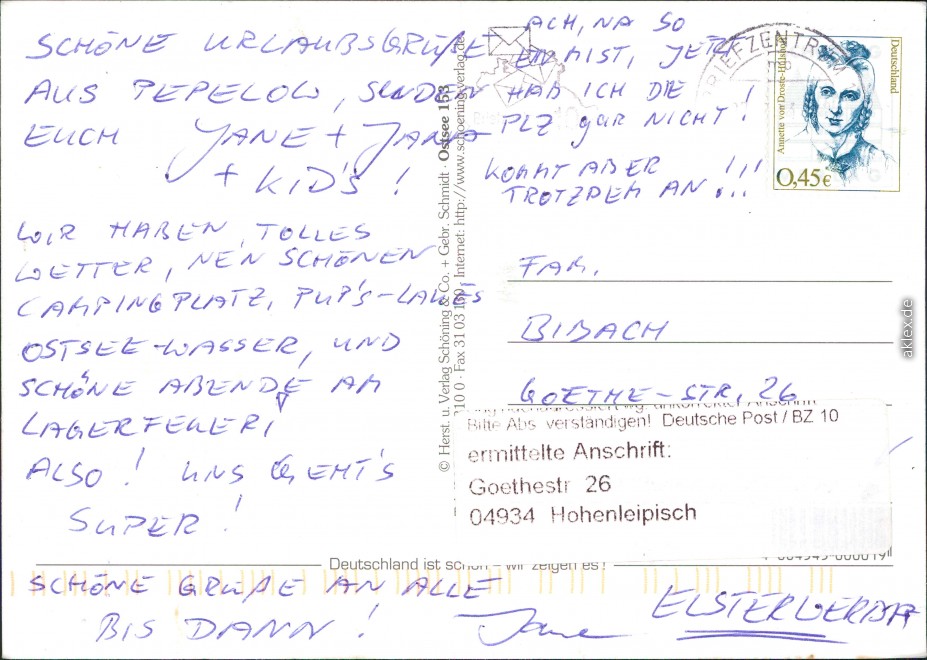 SCHÖNE URLAUBSGRÜßE
AUS PEPELOW, SENDEN
EUCH JANE + JANA
+ KID'S !
WIR HABEN TOLLES
WETTER, NEN SCHÖNEN
CAMPINGPLATZ, PUP'S-LAUES
OSTSEE-WASSER, UND
SCHÖNE ABENDE AM
LAGERFEUER,
ALSO! UNS GEHT'S
SUPER!
SCHÖNE GRÜßE AN ALLE
BIS DANN!
Jane
© Herst. u. Verlag Schöning & Co. + Gebr. Schmidt · Ostsee 153
110 0 · Fax 31 03 Internet: http://www.schoening-verlag.de
ACH, NA SO
MIST, JETZT
HAB ICH DIE
PLZ GAR NICHT!
KOMMT ABER
TROTZDEM AN !!!
BRIEFZENTRUM
Deutschland
Annette von Droste-Hülshoff
0,45€
FAM.
BIBACH
GOETHE-STR, 26
Bitte Abs. verständigen! Deutsche Post / BZ 10
ermittelte Anschrift:
Goethestr 26
04934 Hohenleipisch
Deutschland ist schön - wir zeigen es!
ELSTERWERDA
aklex.de